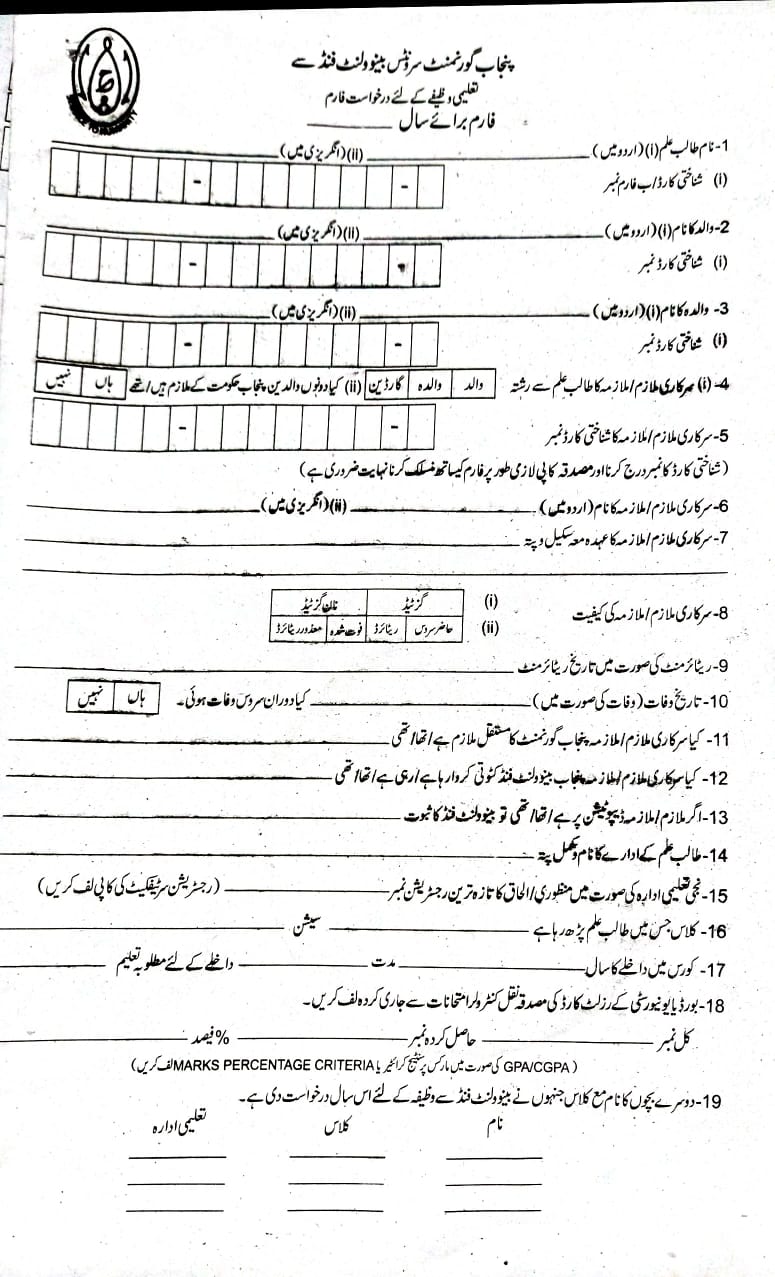 پنجاب گورنمنٹ سرونٹس بینوولنٹ فنڈ سے
تعلیمی وظیفے کے لئے درخواست فارم
فارم برائے سال ________
1- نام طالب علم (i) (اردو میں) ________ (ii) (انگریزی میں) ________
(i) شناختی کارڈ/ب فارم نمبر - -
2- والد کا نام (i) (اردو میں) ________ (ii) (انگریزی میں) ________
(i) شناختی کارڈ نمبر - -
3- والدہ کا نام (i) (اردو میں) ________ (ii) (انگریزی میں) ________
(i) شناختی کارڈ نمبر - -
4- (i) سرکاری ملازم/ملازمہ کا طالب علم سے رشتہ والد والدہ گارڈین (ii) کیا دونوں والدین پنجاب حکومت کے ملازم ہیں/تھے ہاں نہیں
5- سرکاری ملازم/ملازمہ کا شناختی کارڈ نمبر - -
(شناختی کارڈ کا نمبر درج کرنا اور مصدقہ کاپی لازمی طور پر فارم کیساتھ منسلک کرنا نہایت ضروری ہے)
6- سرکاری ملازم/ملازمہ کا نام (اردو میں) ________ (ii) (انگریزی میں) ________
7- سرکاری ملازم/ملازمہ کا عہدہ معہ سکیل و پتہ ________
8- سرکاری ملازم/ملازمہ کی کیفیت (i) گزٹیڈ نان گزٹیڈ
(ii) حاضر سروس ریٹائرڈ فوت شدہ معذور ریٹائرڈ
9- ریٹائرمنٹ کی صورت میں تاریخ ریٹائرمنٹ ________
10- تاریخ وفات (وفات کی صورت میں) ________ کیا دوران سروس وفات ہوئی۔ ہاں نہیں
11- کیا سرکاری ملازم/ملازمہ پنجاب گورنمنٹ کا مستقل ملازم ہے/تھا/تھی ________
12- کیا سرکاری ملازم/ملازمہ پنجاب بینوولنٹ فنڈ کٹوتی کروا رہا ہے/رہی ہے/تھا/تھی ________
13- اگر ملازم/ملازمہ ڈیپوٹیشن پر ہے/تھا/تھی تو بینوولنٹ فنڈ کا ثبوت ________
14- طالب علم کے ادارے کا نام و مکمل پتہ ________
15- نجی تعلیمی ادارہ کی صورت میں منظوری/الحاق کا تازہ ترین رجسٹریشن نمبر ________ (رجسٹریشن سرٹیفکیٹ کی کاپی لف کریں)
16- کلاس جس میں طالب علم پڑھ رہا ہے ________ سیشن ________
17- کورس میں داخلے کا سال ________ مدت ________ داخلے کے لئے مطلوبہ تعلیم ________
18- بورڈ یا یونیورسٹی کے رزلٹ کارڈ کی مصدقہ نقل کنٹرولر امتحانات سے جاری کردہ لف کریں۔
کل نمبر ________ حاصل کردہ نمبر ________ %فیصد ________
(GPA/CGPA کی صورت میں مارکس پرسنٹیج کرائٹیریا MARKS PERCENTAGE CRITERIA لف کریں)
19- دوسرے بچوں کا نام مع کلاس جنہوں نے بینوولنٹ فنڈ سے وظیفہ کے لئے اس سال درخواست دی ہے۔
نام کلاس تعلیمی ادارہ